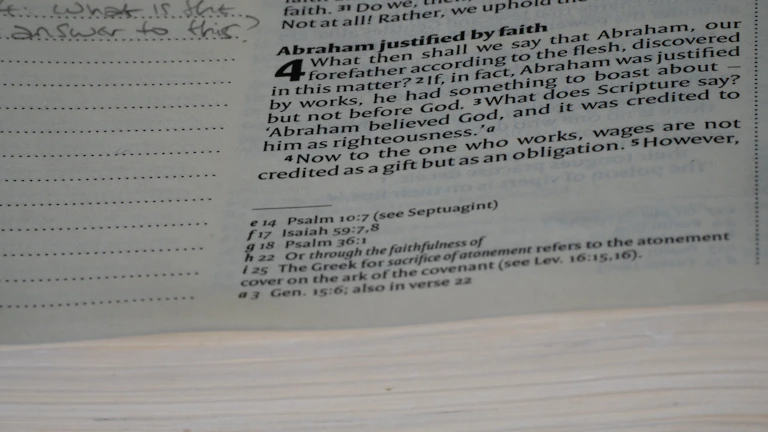 what is the
answer to this?
faith. 31 Do we, then,
Not at all! Rather, we uphold the
Abraham justified by faith
4 What then shall we say that Abraham, our
forefather according to the flesh, discovered
in this matter? 2 If, in fact, Abraham was justified
by works, he had something to boast about –
but not before God. 3 What does Scripture say?
‘Abraham believed God, and it was credited to
him as righteousness.’ a
4 Now to the one who works, wages are not
credited as a gift but as an obligation. 5 However,
e 14 Psalm 10:7 (see Septuagint)
f 17 Isaiah 59:7,8
g 18 Psalm 36:1
h 22 Or through the faithfulness of
i 25 The Greek for sacrifice of atonement refers to the atonement
cover on the ark of the covenant (see Lev. 16:15,16).
a 3 Gen. 15:6; also in verse 22